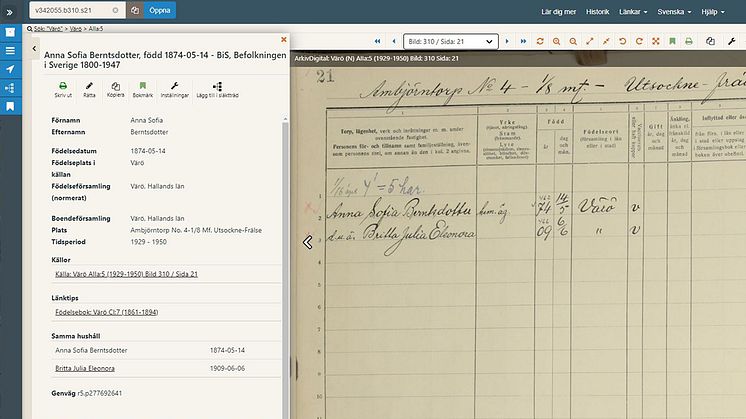 v342055.b310.s21
Öppna
Lär dig mer Historik Länkar Svenska Hjälp
Sök: "Värö" > Värö > AIIa:5
Anna Sofia Berntsdotter, född 1874-05-14 - BiS, Befolkningen
i Sverige 1800-1947
Skriv ut Rätta Kopiera Bokmärk Inställningar Lägg till i släktträd
Förnamn Anna Sofia
Efternamn Berntsdotter
Födelsedatum 1874-05-14
Födelseplats i Värö
källan
Födelseförsamling Värö, Hallands län
(normerat)
Boendeförsamling Värö, Hallands län
Plats Ambjörntorp No. 4-1/8 Mf. Utsockne-Frälse
Tidsperiod 1929 - 1950
Källor
Källa: Värö AIIa:5 (1929-1950) Bild 310 / Sida 21
Länktips
Födelsebok: Värö CI:7 (1861-1894)
Samma hushåll
Anna Sofia Berntsdotter 1874-05-14
Britta Julia Eleonora 1909-06-06
Genväg r5.p277692641
Bild: 310 / Sida: 21
ArkivDigital: Värö (N) AIIa:5 (1929-1950) Bild: 310 / Sida: 21
21
Ambjörntorp No 4 - 1/8 mf. - Utsockne-frä
Torp, lägenhet, verk och inrättningar m. m. under
ovanstående fastighet.
Personens för- och tillnamn samt familjeställning, även-
som personens titel, om annan än den i kol. 2 angivna.
Yrke
(tjänst, näringsfång).
Stam
(främmande).
Lyte
Född
år
dag
och
mån.
Födelseort
(församling i län
eller i stad)
Gift
år, dag
och
månad
Änkling,
år, dag
och
månad
Inflyttad eller
1/16 mf 4' = 5 har.
1
Anna Sofia Berntsdotter hem.äg. 74 14/5 Värö v
2
d.u.ä. Britta Julia Eleonora 09 6/6 " v
3
4
5
6
7
8
9
10